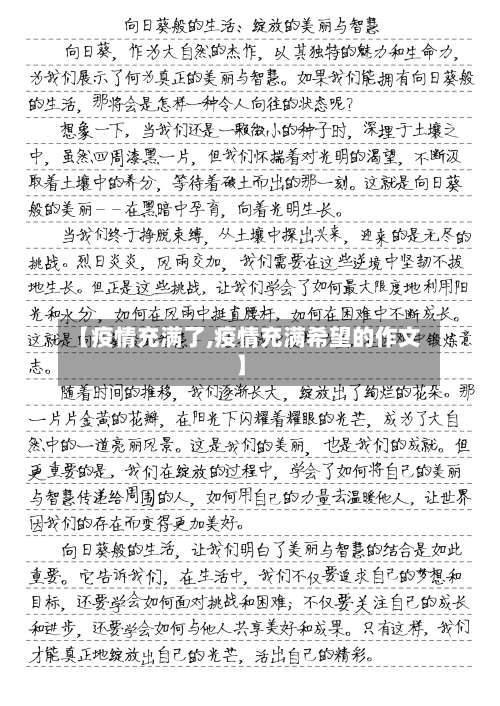 向日葵般的生活：绽放的美丽与智慧
向日葵，作为大自然的杰作，以其独特的魅力和生命力，
为我们展示了何为真正的美丽与智慧。如果我们能拥有向日葵般
的生活，那将会是怎样一种令人向往的状态呢？
想象一下，当我们还是一颗微小的种子时，深埋于土壤之
中，虽然四周漆黑一片，但我们怀揣着对光明的渴望，不断汲
取着土壤中的养分，等待着破土而出的那一刻。这就是向日葵
般的美丽--在黑暗中孕育，向着光明生长。
当我们终于挣脱束缚，从土壤中探出头来，迎来的是无尽的
挑战。烈日炎炎，风雨交加，我们需要在这些逆境中坚韧不拔
地生长。但正是这些挑战，让我们学会了如何最大限度地利用阳
光和水分，如何在风雨中挺直腰杆，如何在困难中不断成长。
这就是向
【疫情充满了,疫情充满希望的作文
】
锻炼意
志。
随着时间的推移，我们逐渐长大，绽放出了绚烂的花朵。那
一片片金黄的花瓣，在阳光下闪耀着耀眼的光芒，成为了大自
然中的一道亮丽风景。这是我们的美丽，也是我们的成就。但
更重要的是，我们在绽放的过程中，学会了如何将自己的美丽
与智慧传递给周围的人，如何用自己的力量去温暖他人，让世界
因我们的存在而变得更加美好。
向日葵般的生活，让我们明白了美丽与智慧的结合是如此
重要。它告诉我们，在生活中，我们不仅要追求自己的梦想和
目标，还要学会如何面对挑战和困难；不仅要关注自己的成长
和进步，还要学会如何与他人共享美好和成果。只有这样，我们
才能真正地绽放出自己的光芒，活出自己的精彩。